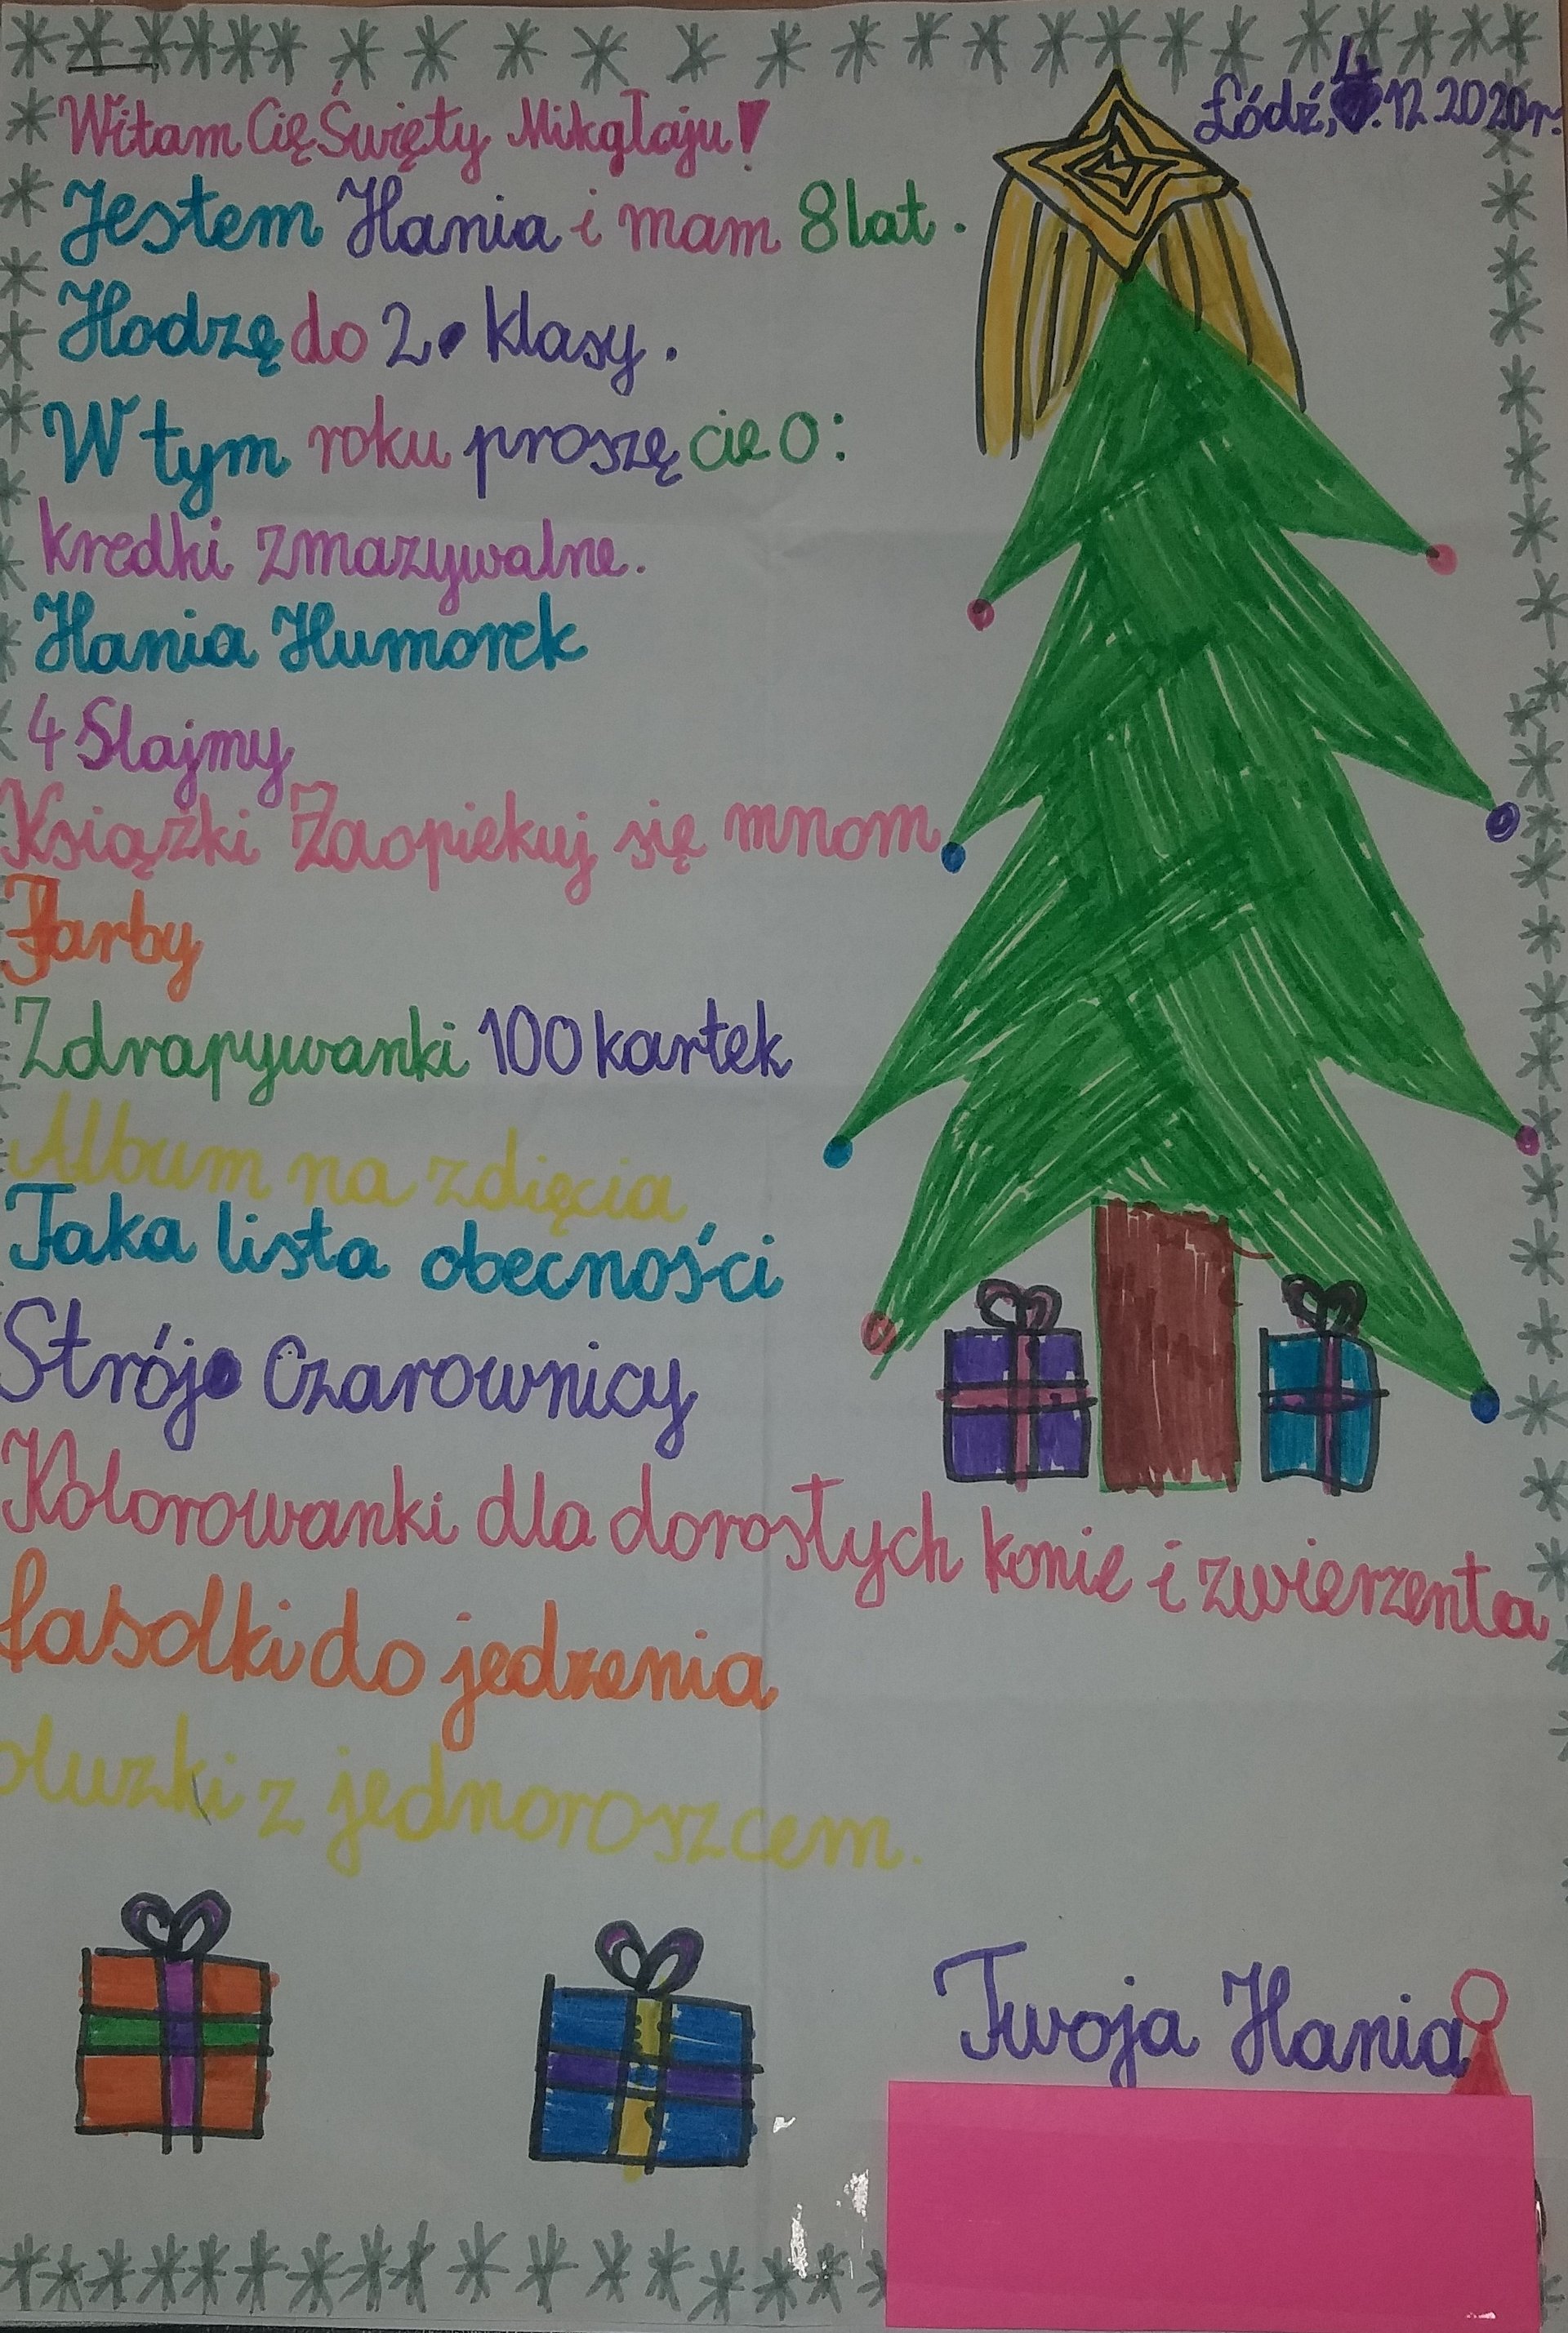 Łódź, 4.12.2020r.
Witam Cię Święty Mikołaju!
Jestem Hania i mam 8 lat.
Hodzę do 2. klasy.
W tym roku proszę cie o:
kredki zmazywalne.
Hania Humorek
4 Slajmy
Książki Zaopiekuj się mnom
Farby
Zdrapywanki 100 kartek
Album na zdięcia
Taka lista obecności
Strój Czarownicy
Kolorowanki dla dorosłych konie i zwierzenta
fasolki do jedzenia
z jednoroszcem.
Twoja Hania